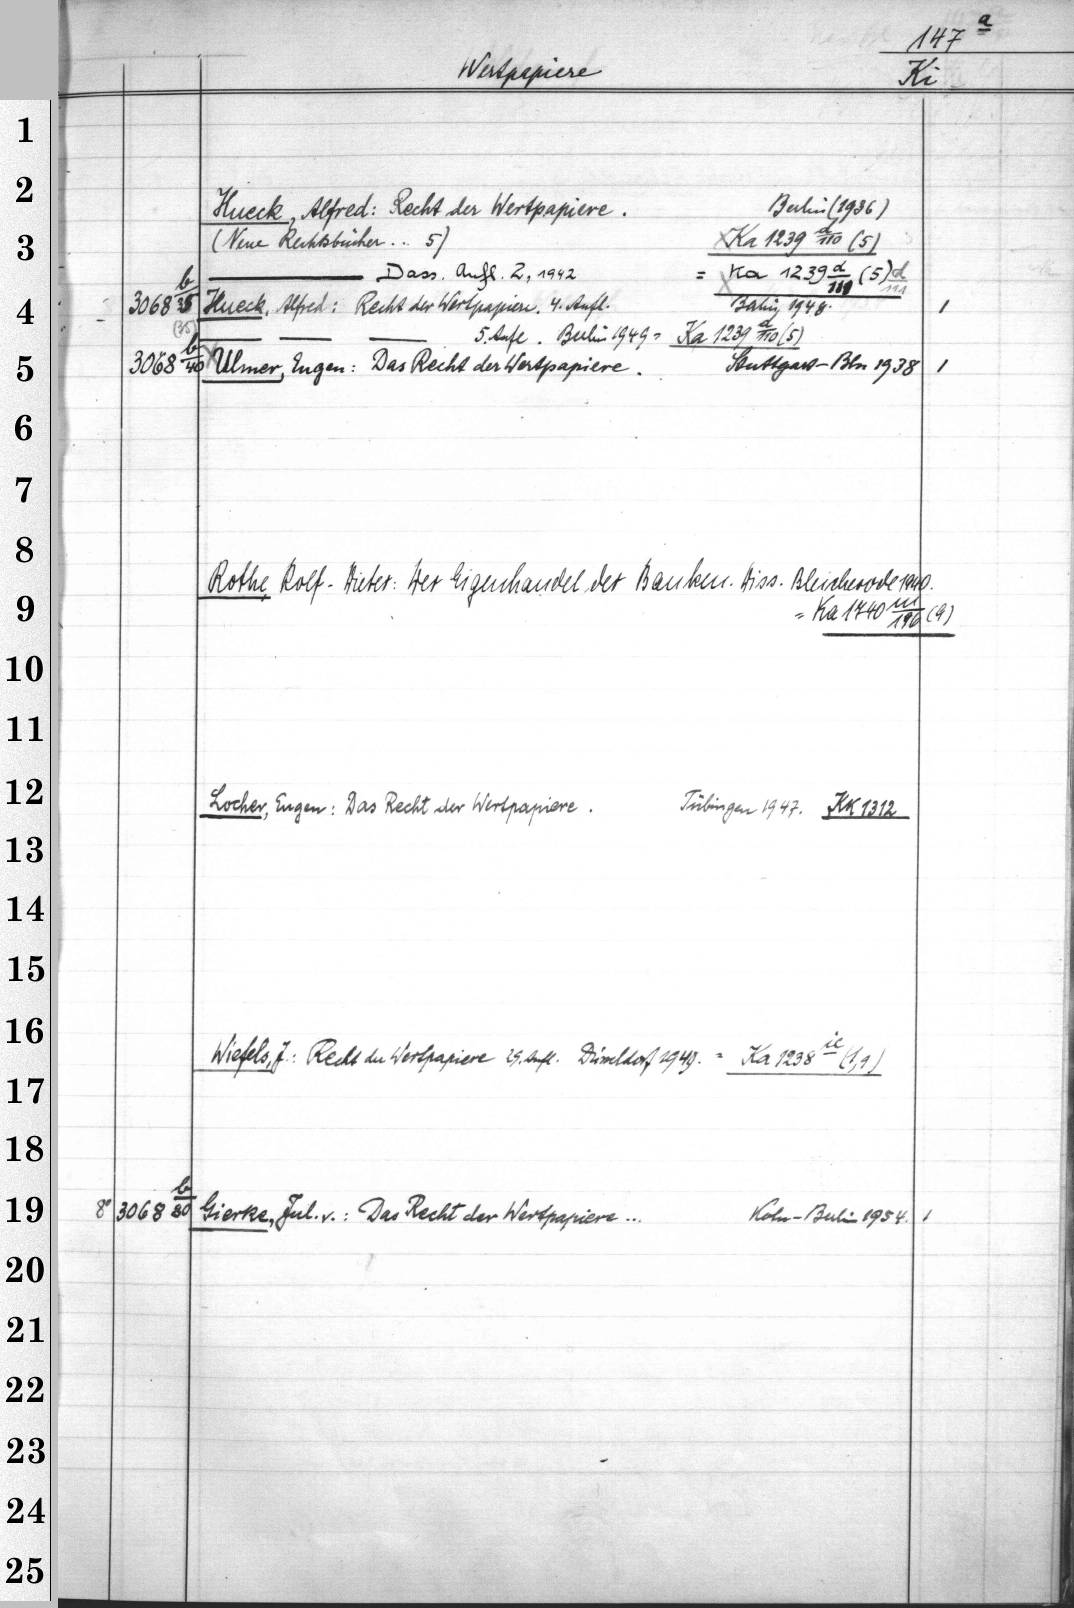 147 a
Wertpapiere Ki
1
2
Hueck, Alfred: Recht der Wertpapiere. Berlin (1936)
3 (Neue Rechtsbücher .. 5) Ka 1239 d/110 (5)
Dass. Aufl. 2, 1942 = Ka 1239 d/111 (5) d/111
4 3068 b/35 Hueck, Alfred: Recht der Wertpapiere. 4. Aufl. Berlin 1948. 1
(35) 5. Aufl. Berlin 1949 = Ka 1239 d/110 (5)
5 3068 b/40 Ulmer, Eugen: Das Recht der Wertpapiere. Stuttgart-Bln 1938 1
6
7
8
Rothe, Rolf-Dieter: Der Eigenhandel der Banken. Diss. Bleicherode 1940.
9 = Ka 1740 m/196 (9)
10
11
12 Locher, Eugen: Das Recht der Wertpapiere. Tübingen 1947. KK 1312
13
14
15
16 Wiefels, J.: Recht der Wertpapiere 29. Aufl. Düsseldorf 1949. = Ka 1238 ic (1,9)
17
18
19 8° 3068 b/80 Gierke, Jul. v.: Das Recht der Wertpapiere ... Köln-Berlin 1954. 1
20
21
22
23
24
25